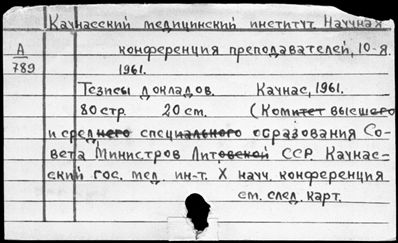 Качнасский медицинский институт. Научная
А
789
конференция преподавателей, 10-я.
1961.
Тезисы докладов. Каунас, 1961.
80 стр. 20 см. (Комитет высшего
и среднего специального образования Со-
вета Министров Литовской ССР. Каунас-
ский гос. мед. ин-т. X науч. конференция
см. след. карт.